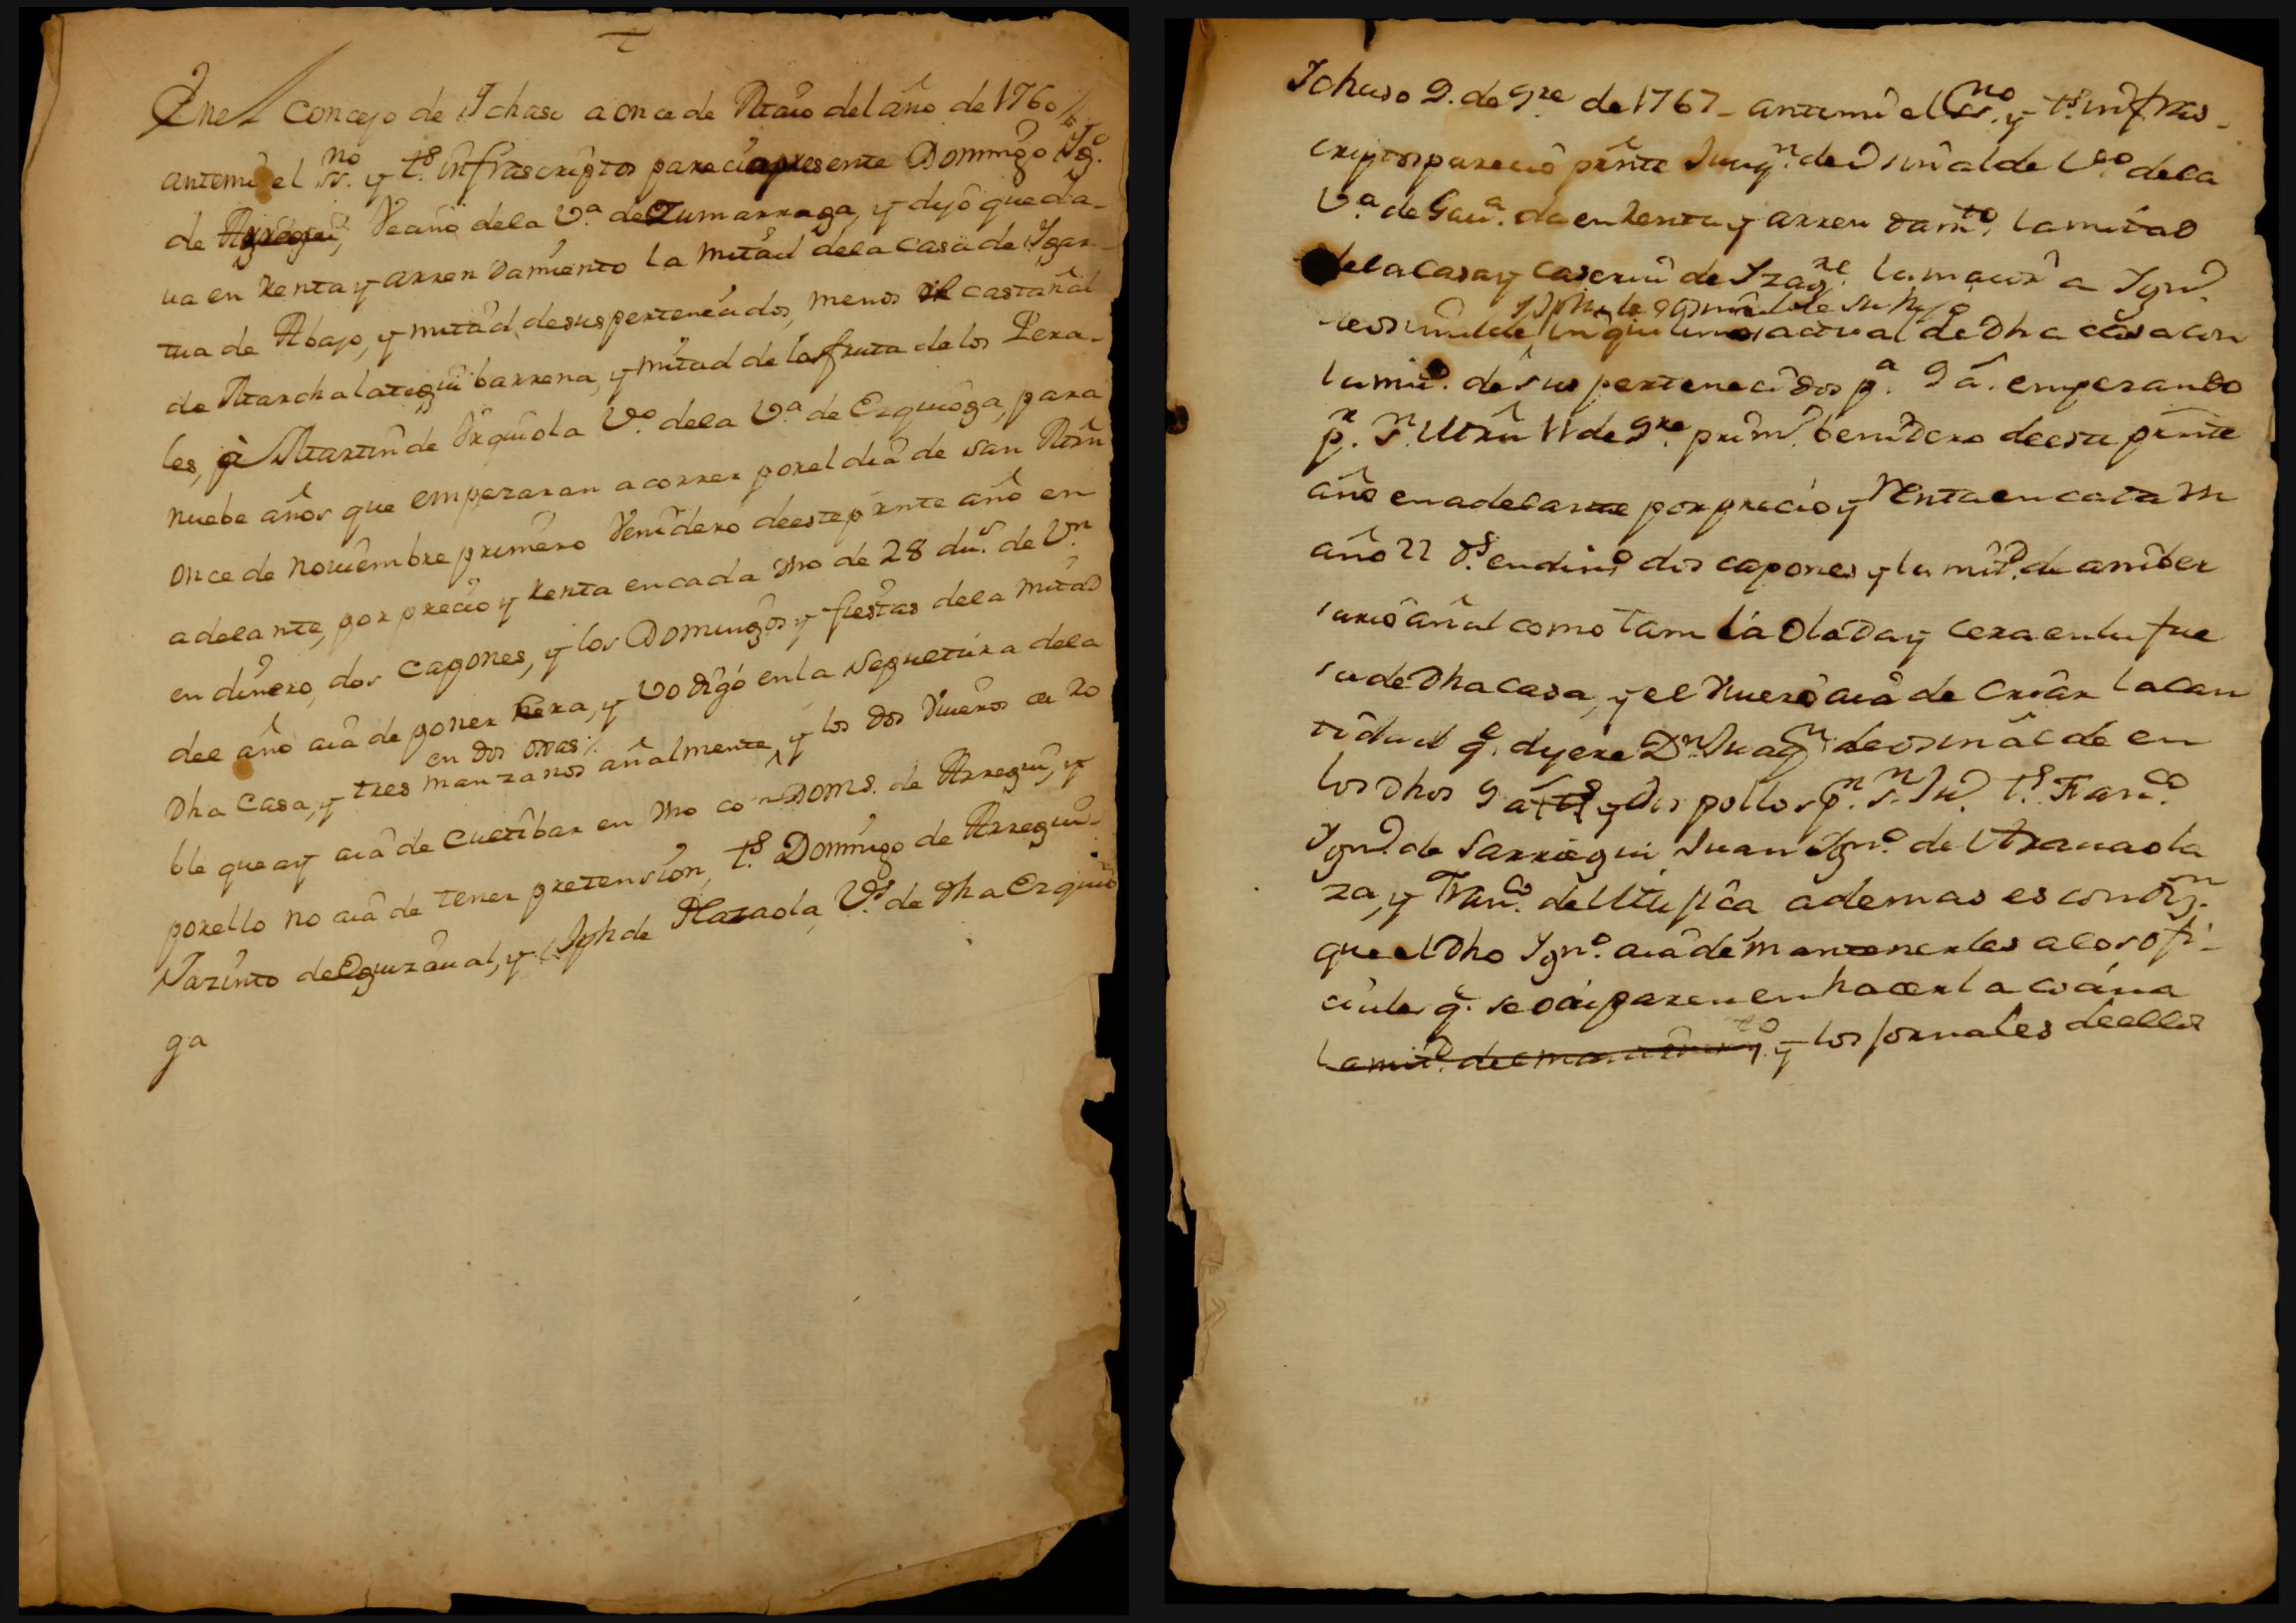 En el Concejo de Ychaso a once de Maio del año de 1760
antemi el ss.no y t.s infrascriptos parecio presente Domingo Ig.o
de Arregui, Vecino dela V.a de Zumarraga, y dijo que da-
ua en Renta y arrendamiento la mitad dela Casa de Ygar-
tua de Abajo, y mitad desus pertenecidos, menos el castañal
de Marchalategui barrena, y mitad de la fruta de los Pera-
les, a Martin de Urquiola V.o dela V.a de Ezquioga, para
nuebe años que empezaran a correr por el dia de san Mrn
once de noviembre primero Venidero deeste prnte año en
adelante, por precio y Renta en cada Uno de 28 du.s de V.n
en dinero, dos Capones, y los Domingos y fiestas dela mitad
del año aia de poner Cera, y Vodigo en la Sepuetura dela
en dos otras
Dha Casa, y tres manzanos añalmente, y los dos Viueros a Ro
ble que ay aia de Cuetibar en Uno con Dom.s de Arregui, y
porello no aia de tener pretension, t.s Domingo de Arregui-
Jazinto de Eguzaual, y Jph de Plazaola, V.s de Dha Ezquio
ga
Ychaso 9. de 9re de 1767 - antemi el ss.no y t.s infras-
criptos parecio prnte Juaq.n de Osinalde V.o dela
V.a de Gau.a da en Renta y arrendam.to la mitad
dela Casa y Caseriu de Yzag.re la maior a Ygn.o
y Jph de Osinalde su hijo
de Osinalde inquilinos actual de Dha casa con
la mit.d de sus pertenecidos p.a 9 a. empezando
p.r S.n Mrn 11 de 9re prim.o benidero deeste prnte
año en adelante por precio y Renta en cada un
año 22 d.s en din.o dos capones y la mit.d de aniber
sario añal como tam la Olada y cera en la fue
sa de Dha Casa, y el Viuero aia de Criar la can
tidad q.e dijere D.n Juaq.n de Osinalde en
los Dhos 9 a. y dos pollos p.r S.n Ju.o t.s Fran.co
Ygn.o de Sarriegui, Juan Ygn.o de Aranaola
za, y Fran.co de ademas es condi.n
que el Dho Ygn.o aia de mantenerles a los ofi-
ciales q.e se ocuparen en hacer la
la mit.d del y los jornales deellos